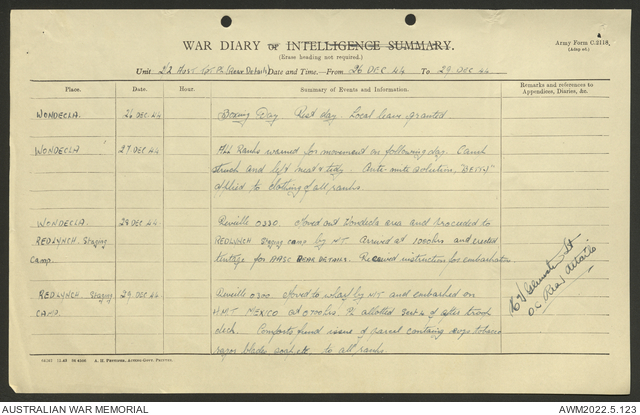 WAR DIARY or INTELLIGENCE SUMMARY.
(Erase heading not required.)
Army Form C.2118.
(Adapted)
Unit 2/2 (Rear Details) Date and Time.—From 26 DEC 44 To 29 DEC 44
Place. Date. Hour. Summary of Events and Information. Remarks and references to Appendices, Diaries, &c.
WONDECLA. 26 DEC 44 Boxing Day. Rest day. Local leave granted.
WONDECLA 27 DEC 44 All Ranks warned for movement on following day. Camp
struck and left neat & tidy. Anti-mite solution,
applied to clothing of all ranks.
WONDECLA. 28 DEC 44 Reveille 0330. Moved out Wondecla area and proceeded to
REDLYNCH. Staging REDLYNCH Staging camp by MT. Arrived at 1000hrs and erected
Camp. tentage for AASC REAR DETAILS. Received instruction for embarkation
REDLYNCH Staging 29 DEC 44 Reveille 0300. Moved to wharf by MT and embarked on
CAMP. HMT MEXICO at 0700hrs. Pl allotted of after troop
deck. Comforts fund issue of parcel containing tobacco
razor blades soap etc. to all ranks.
Lt
O.C. Rear details
A. H. Pettifer, Acting Govt. Printer.
AUSTRALIAN WAR MEMORIAL
AWM2022.5.123